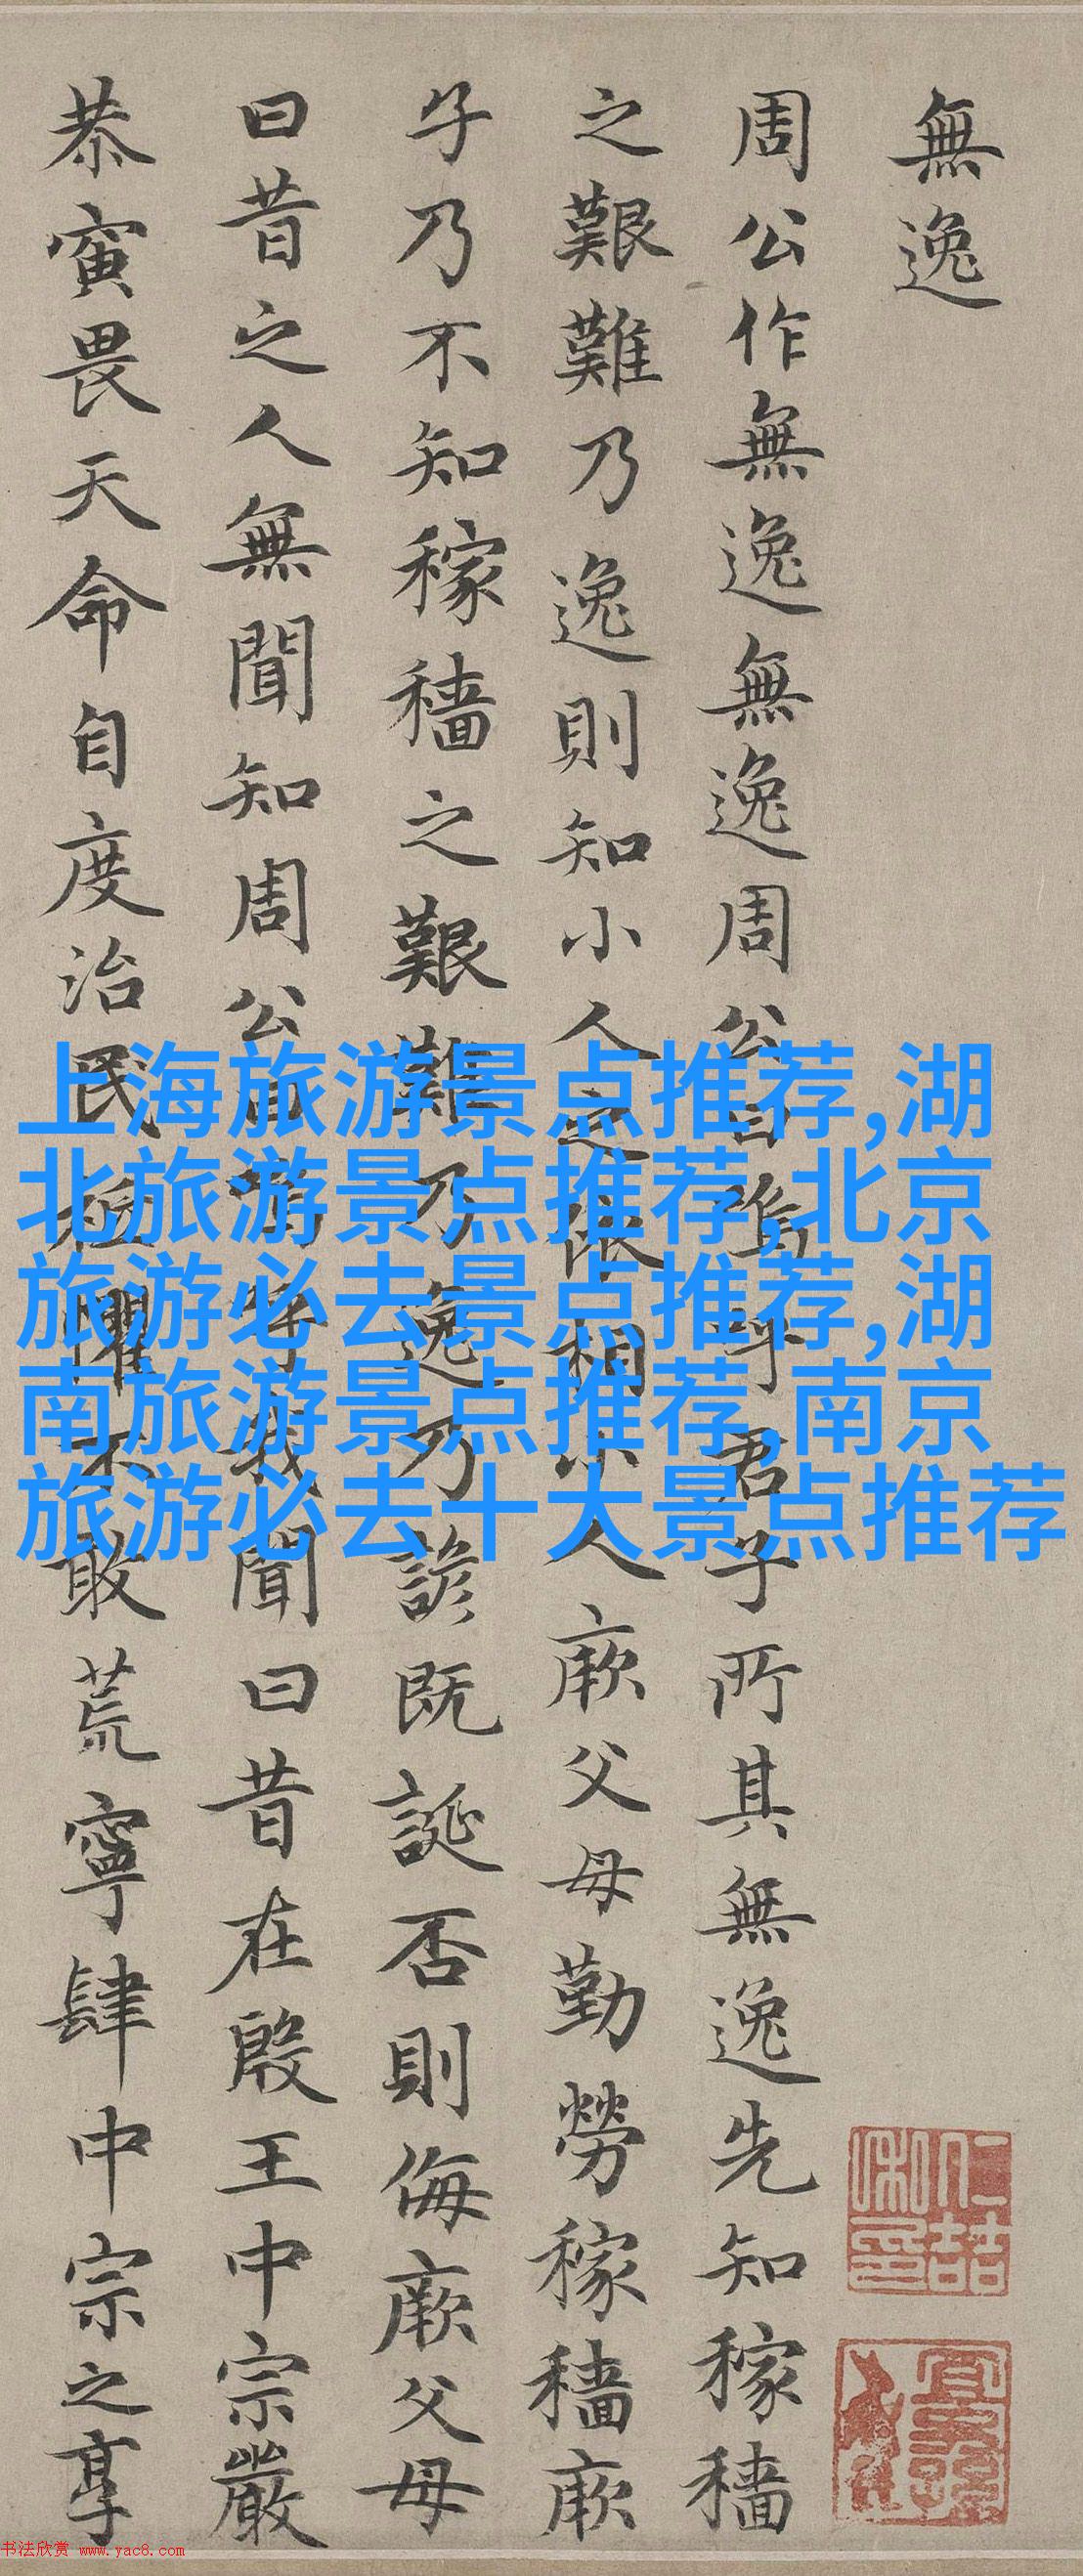 無逸
周公作無逸無逸周公曰嗚呼君子所其無逸先知稼穡
之艱難乃逸則知小人之依相小人厥父母勤勞稼穡厥
子乃不知稼穡之艱難乃逸乃諺既誕否則侮厥父母
曰昔之人無聞知周公曰嗚呼我聞曰昔在殷王中宗嚴
恭寅畏天命自度治民祗懼不敢荒寧肆中宗之享
上海旅游景点推荐,湖
北旅游景点推荐,北京
旅游必去景点推荐,湖
南旅游景点推荐,南京
旅游必去十大景点推荐
书法欣赏 www.yac8.com